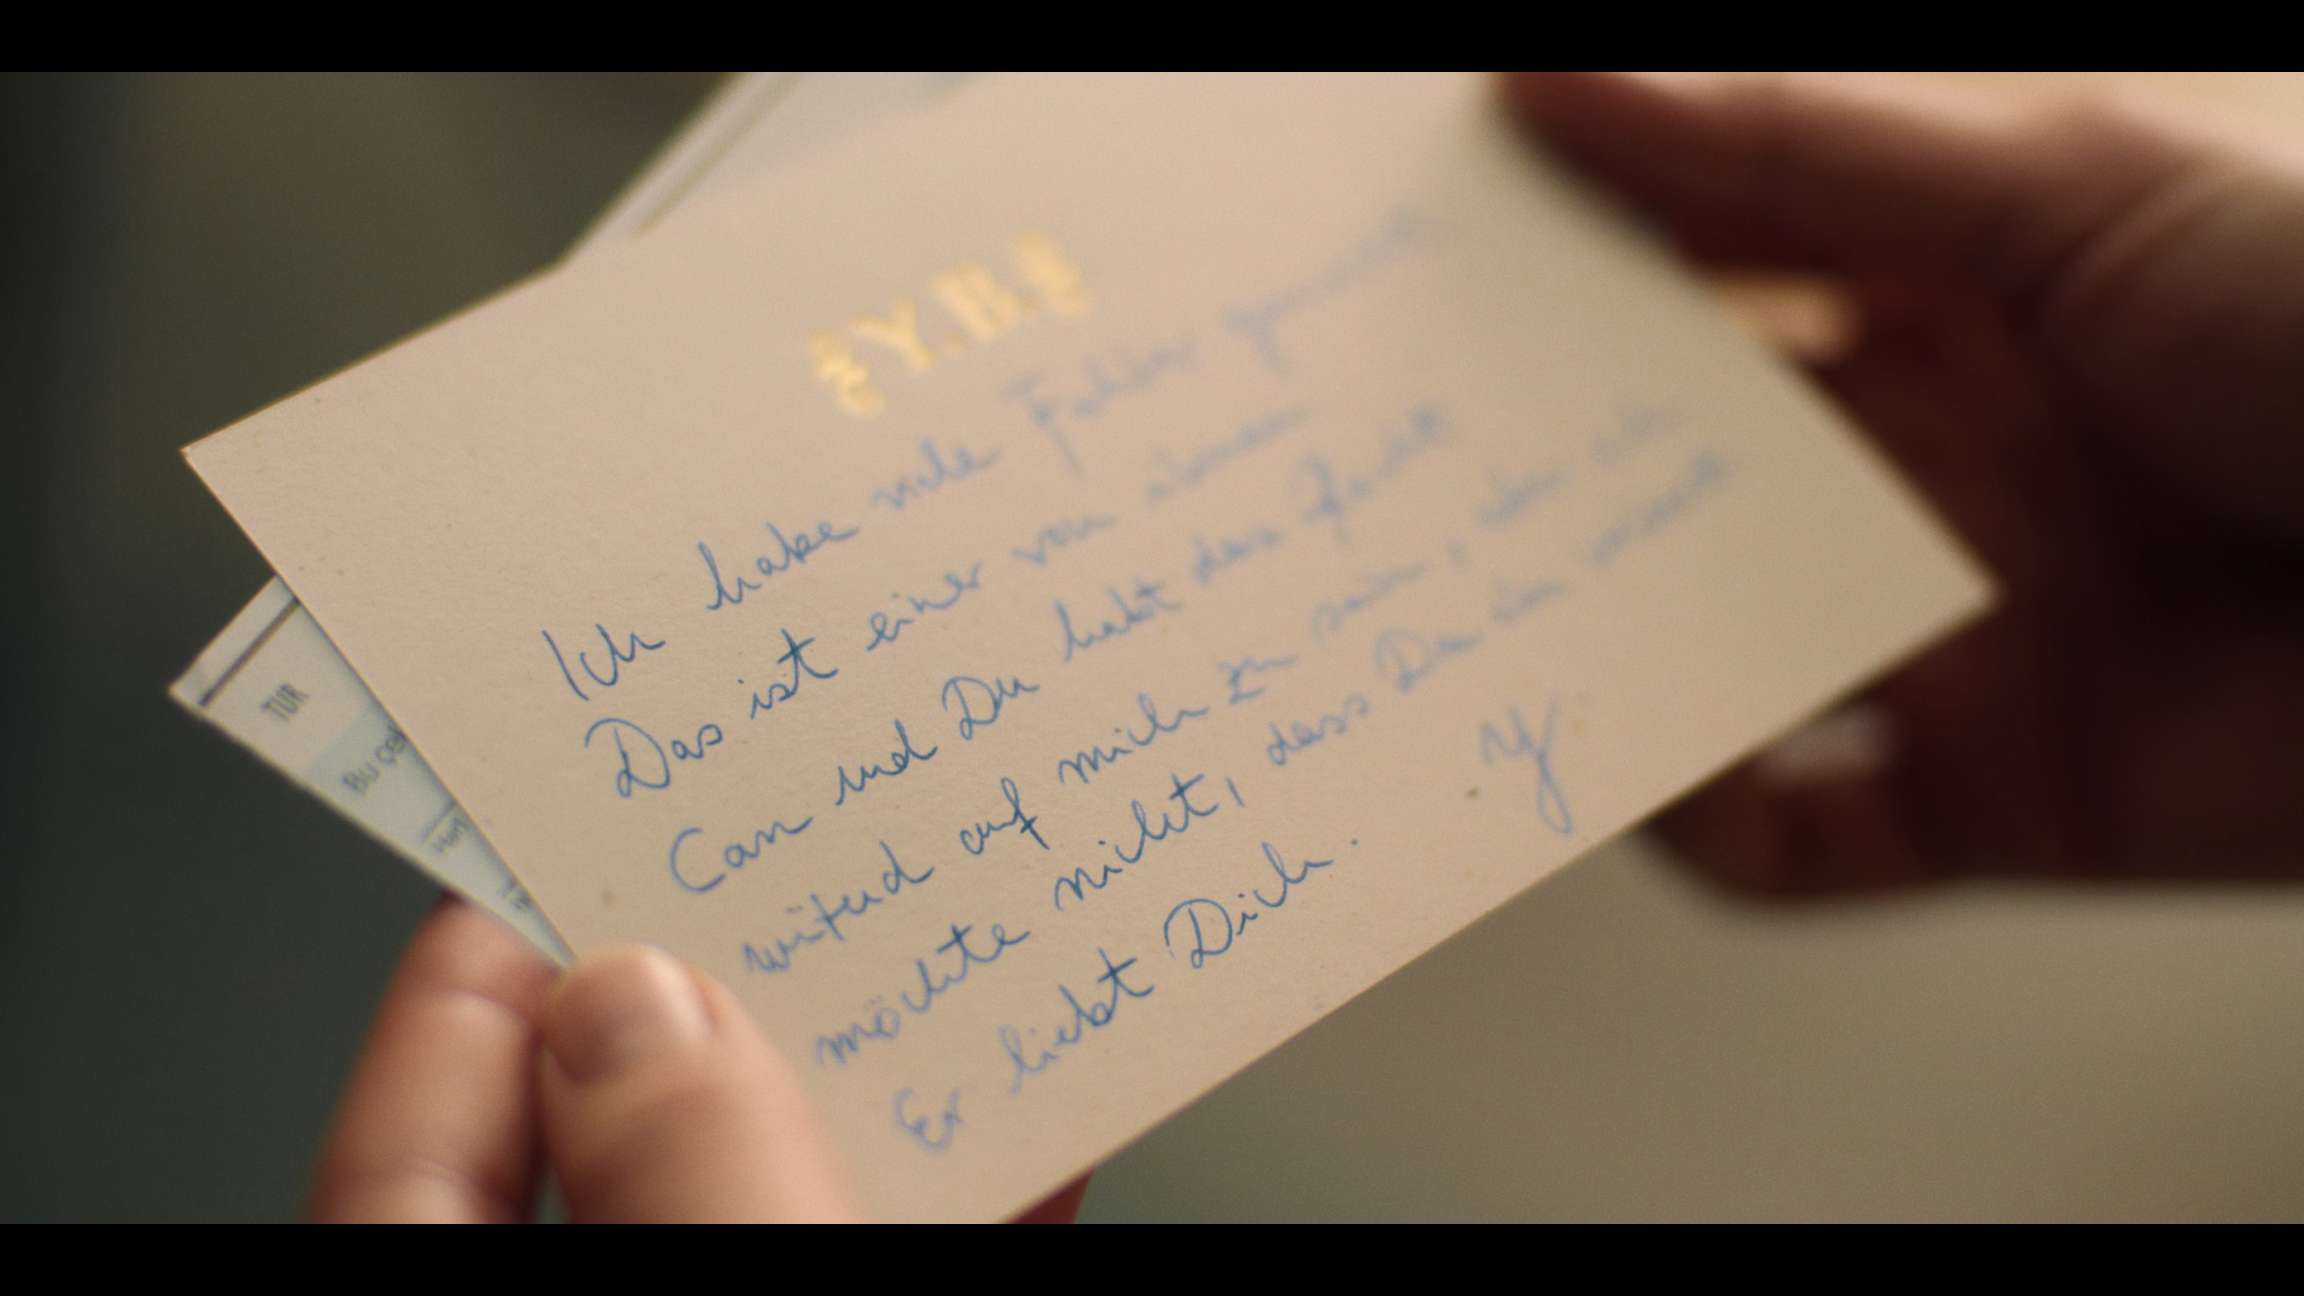 Y.B.
Ich habe viele Fehler gemacht
Das ist einer von ihnen
Can und Du habt das Recht
wütend auf mich zu sein, aber ich
möchte nicht, dass Du ihn verlässt
Er liebt Dich.
Y
TUR
Bu çek